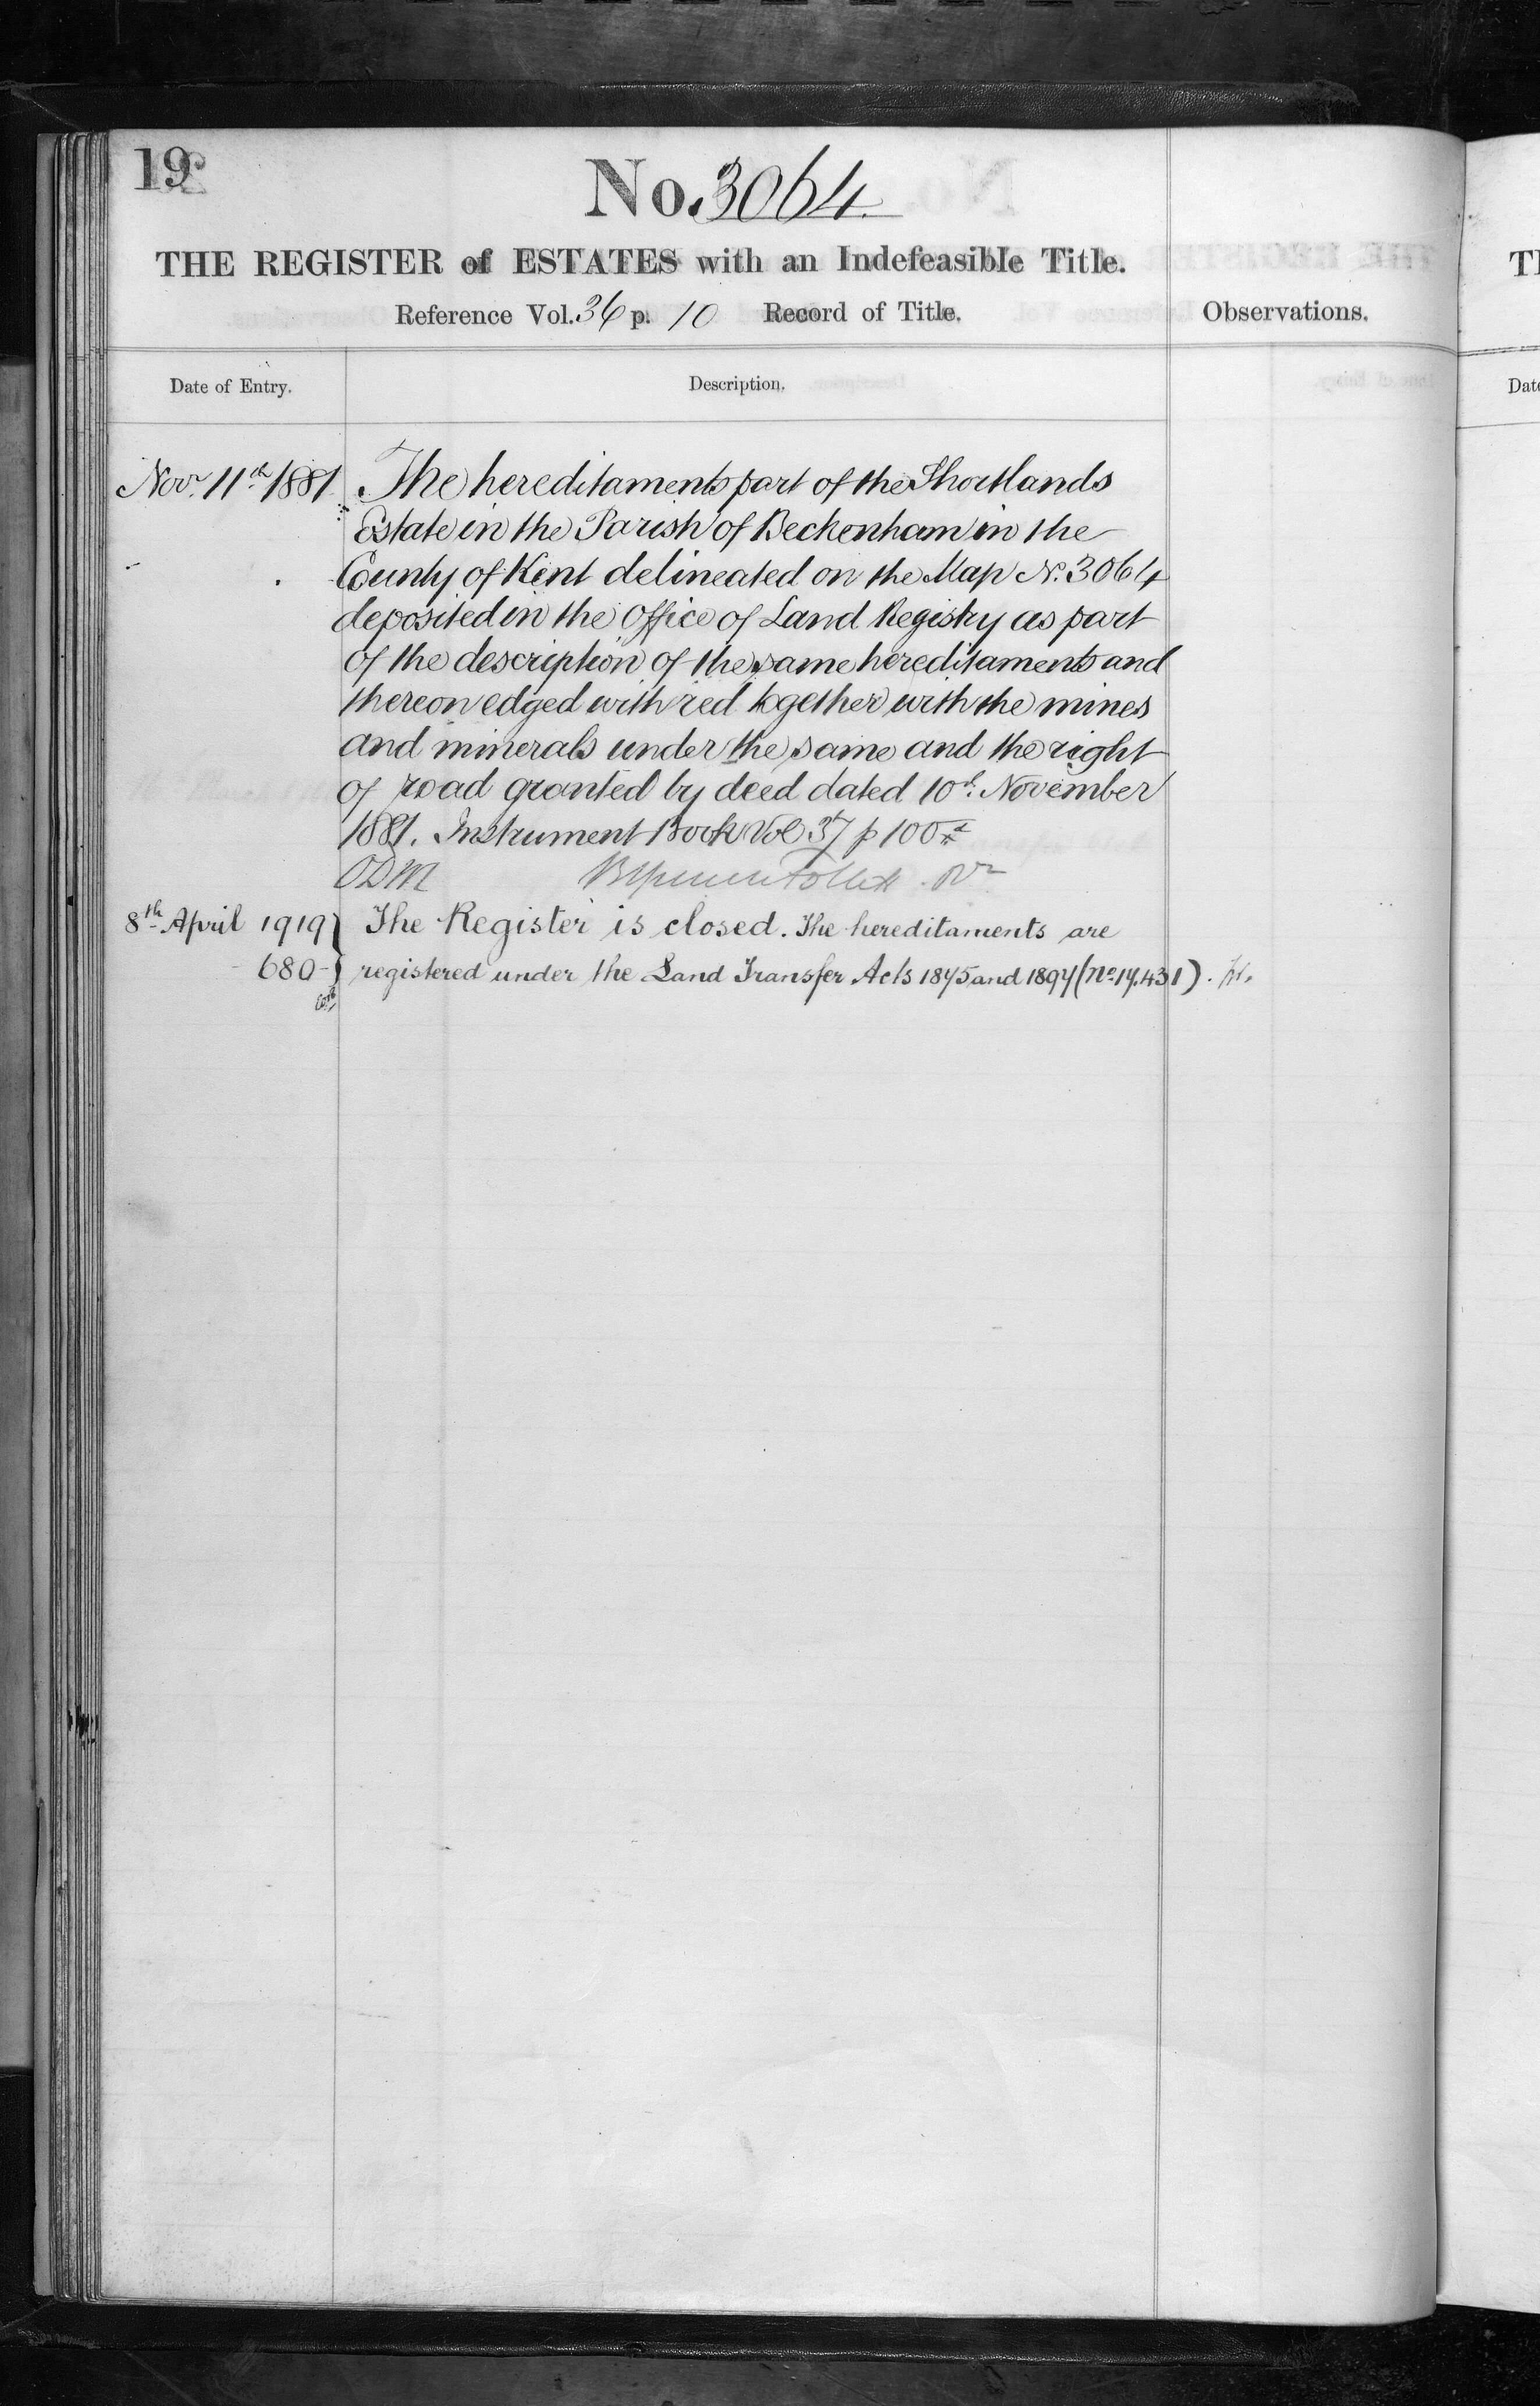 19
No. 3064.
THE REGISTER of ESTATES with an Indefeasible Title.
Reference Vol. 36 p. 10 Record of Title.
Observations.
Date of Entry.
Description.
Novr. 11th 1881
The hereditaments part of the Shortlands
Estate in the Parish of Beckenham in the
County of Kent delineated on the Map No. 3064
deposited in the Office of Land Registry as part
of the description of the same hereditaments and
thereon edged with red together with the mines
and minerals under the same and the right
of road granted by deed dated 10th. November
1881. Instrument Book Vol 37 p 100
ODM
8th April 1919
680
The Register is closed. The hereditaments are
registered under the Land Transfer Acts 1875 and 1897 (No. 17.431).